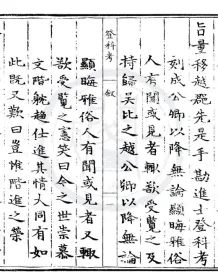 旨量移越郡先是手勘進士登科考
刻成公卿以降無論顯晦雅俗
人有聞或見者輙欲受覽之及
持歸吳比之越公卿以降無論
登科考 敘 一
顯晦雅俗人有聞或見者又輙
欲受覽之憲笑曰今之世崇慕
文階躭趨仕進其情大同有如
此既又歎曰豈惟階進之榮